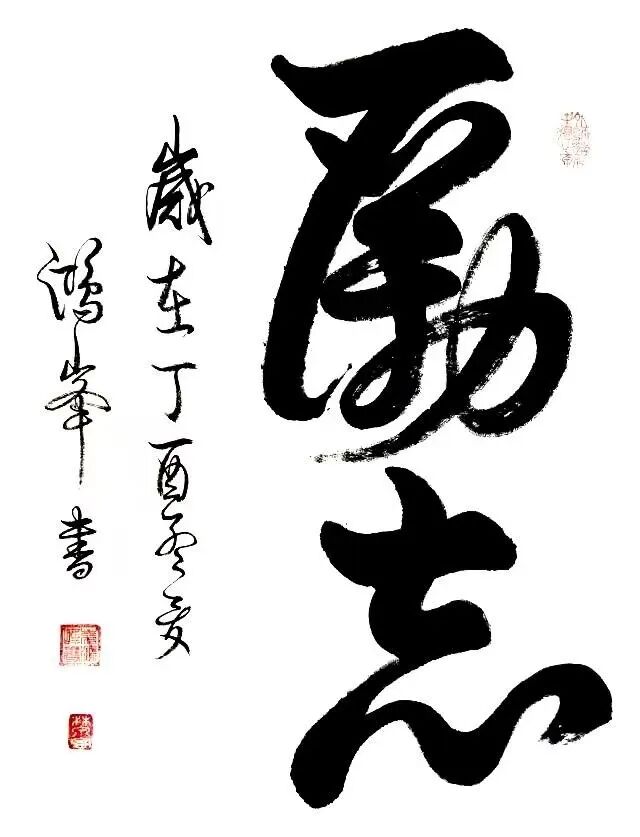 勵志
歲在丁酉夏
鴻峯書